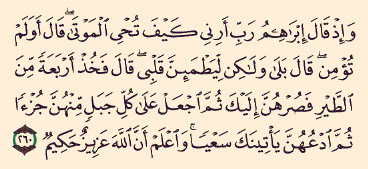 وَإِذْ قَالَ إِبْرَٰهِـۧمُ رَبِّ أَرِنِى كَيْفَ تُحْىِ ٱلْمَوْتَىٰ ۖ قَالَ أَوَلَمْ
تُؤْمِن ۖ قَالَ بَلَىٰ وَلَٰكِن لِّيَطْمَئِنَّ قَلْبِى ۖ قَالَ فَخُذْ أَرْبَعَةً مِّنَ
ٱلطَّيْرِ فَصُرْهُنَّ إِلَيْكَ ثُمَّ ٱجْعَلْ عَلَىٰ كُلِّ جَبَلٍ مِّنْهُنَّ جُزْءًا
ثُمَّ ٱدْعُهُنَّ يَأْتِينَكَ سَعْيًا ۚ وَٱعْلَمْ أَنَّ ٱللَّهَ عَزِيزٌ حَكِيمٌ ٢٦٠